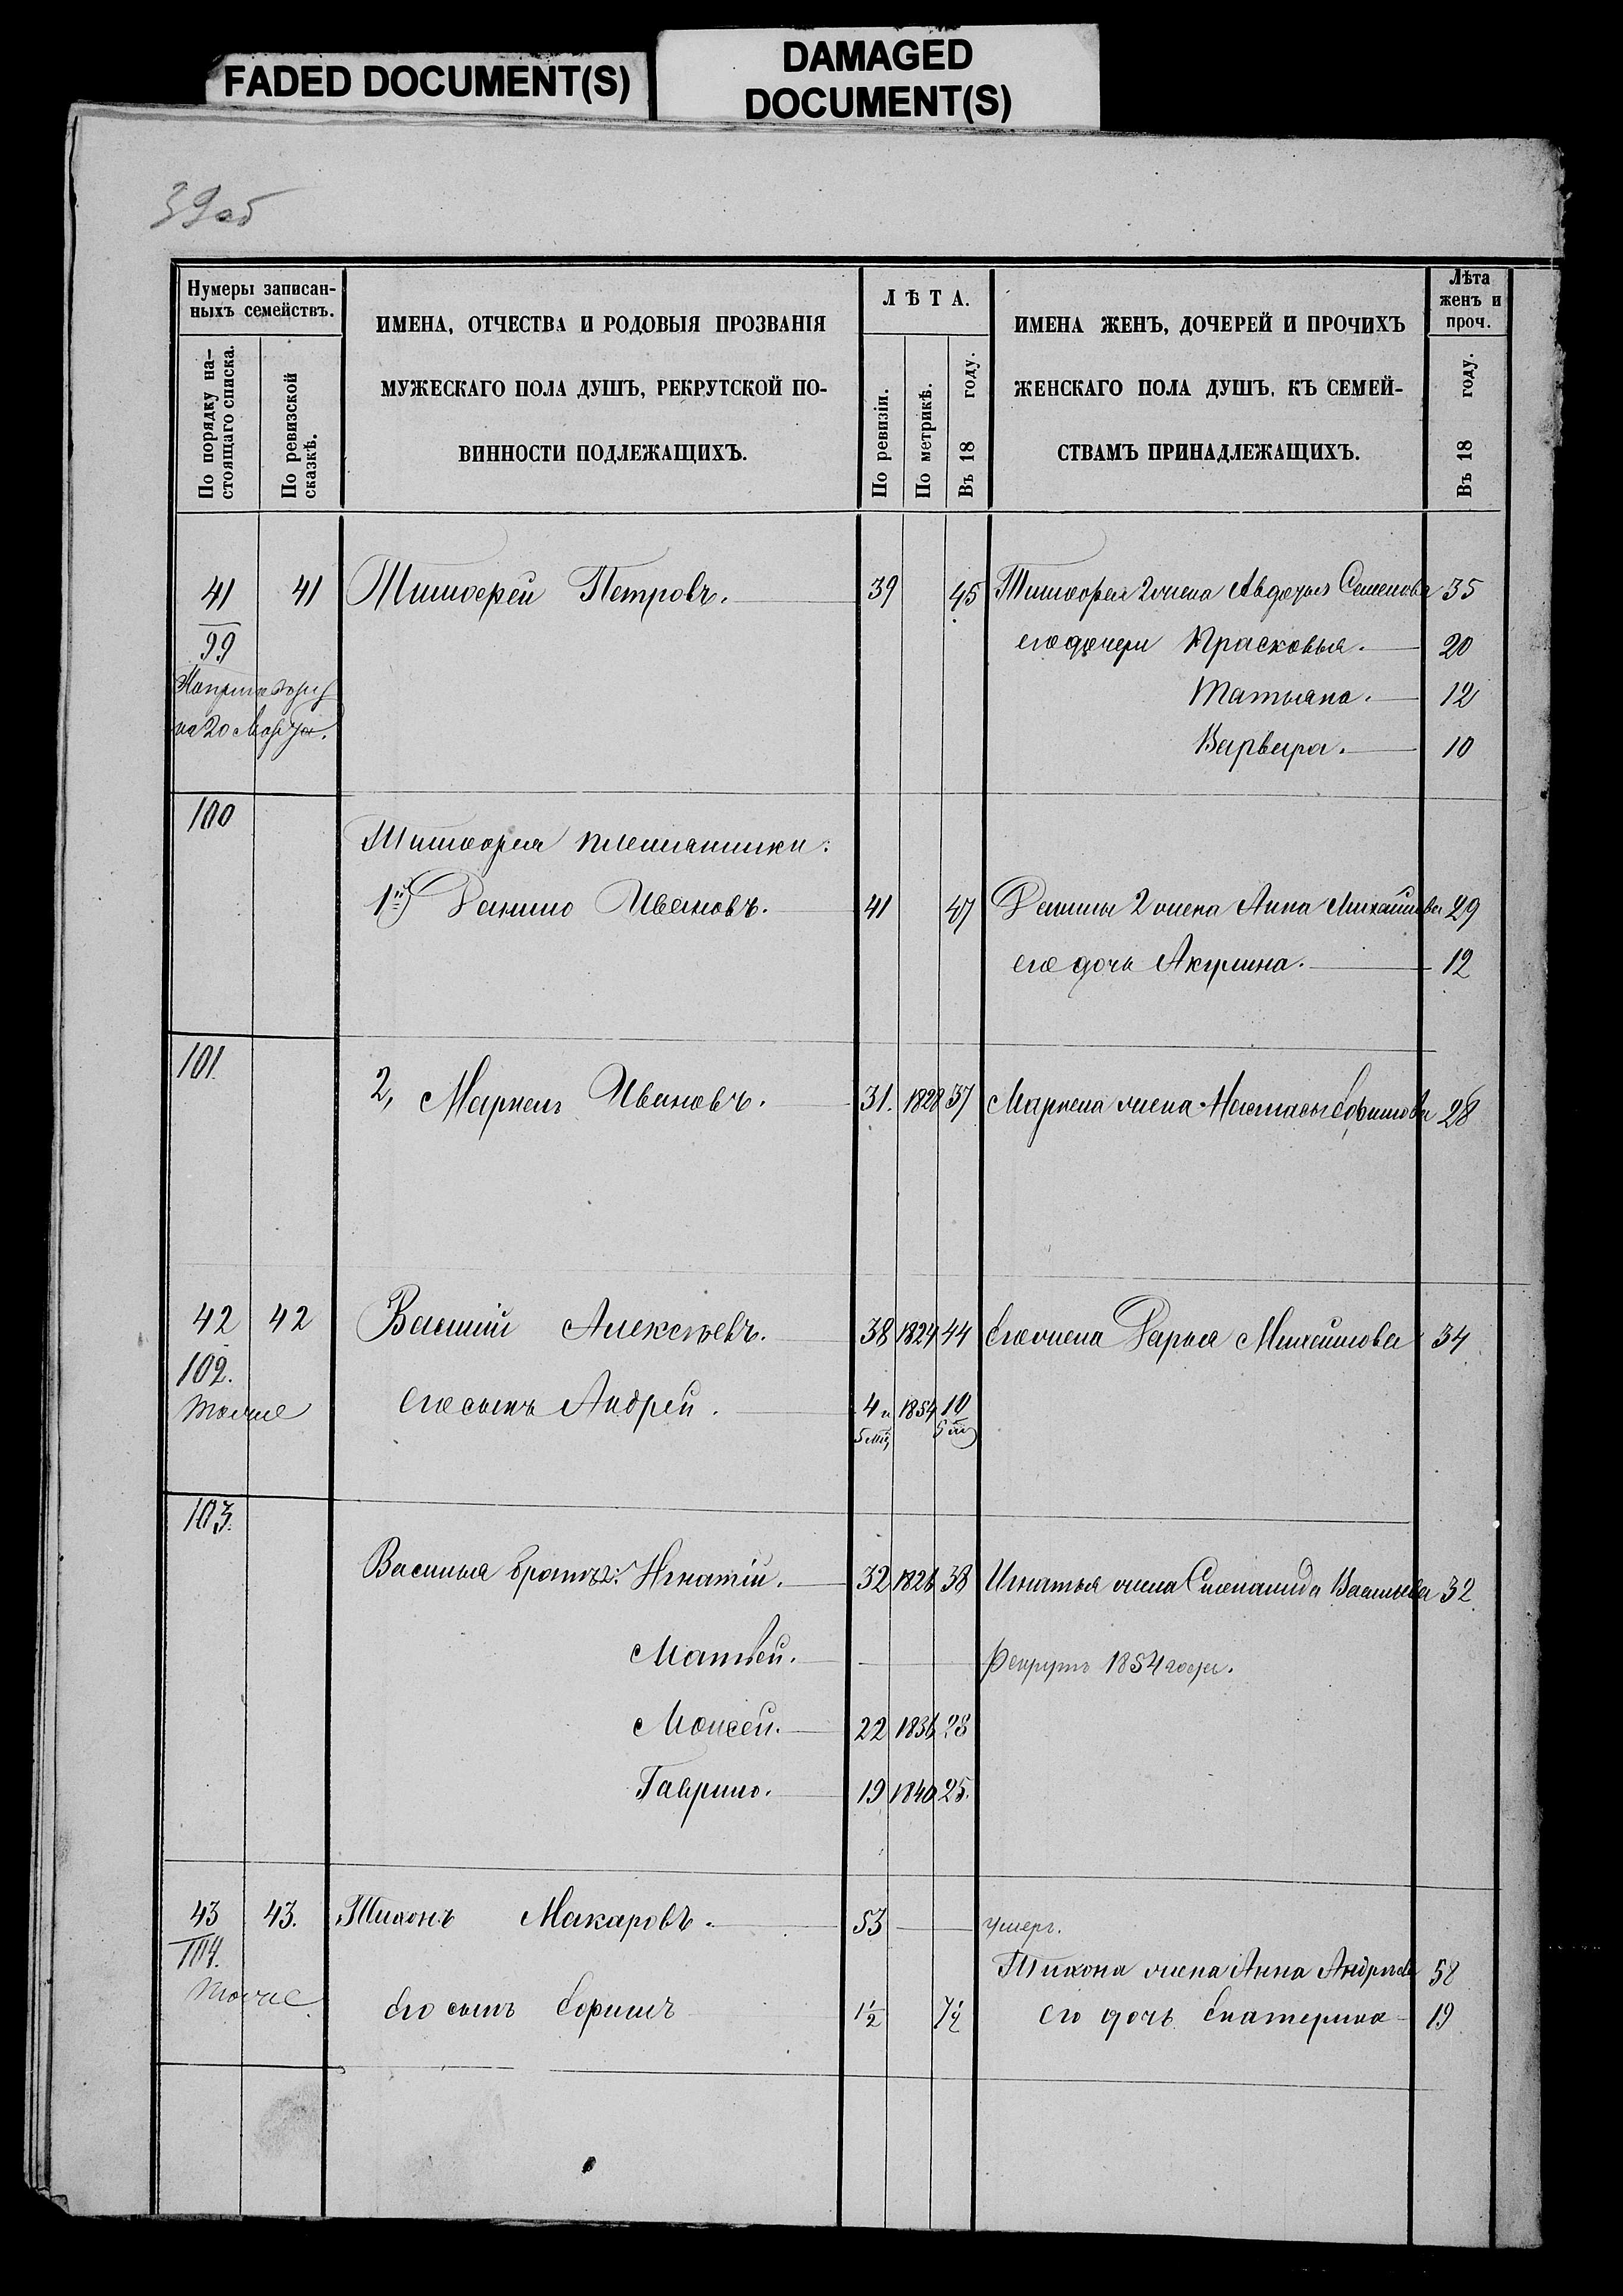 FADED DOCUMENT(S)
DAMAGED
DOCUMENT(S)
39 об
Нумеры записан-
ныхъ семействъ.
По порядку на-
стоящаго списка.
По ревизской
сказкѣ.
ИМЕНА, ОТЧЕСТВА И РОДОВЫЯ ПРОЗВАНІЯ
МУЖЕСКАГО ПОЛА ДУШЪ, РЕКРУТСКОЙ ПО-
ВИННОСТИ ПОДЛЕЖАЩИХЪ.
ЛѢТА.
По ревизіи.
По метрикѣ.
Въ 18 году.
ИМЕНА ЖЕНЪ, ДОЧЕРЕЙ И ПРОЧИХЪ
ЖЕНСКАГО ПОЛА ДУШЪ, КЪ СЕМЕЙ-
СТВАМЪ ПРИНАДЛЕЖАЩИХЪ.
Лѣта
женъ и
проч.
Въ 18 году.
41 41 Тимофей Петровъ. 39 45 Тимофея 2 жена Авдотья Семенова 35
99 его дочери Прасковья. 20
Татьяна. 12
на 20 Марта.
Варвара. 10
100
Тимофея племянники:
1й Данило Ивановъ. 41 47 Данилы 2 жена Анна Михайлова 29
его дочь Акулина. 12
101
2, Маркелъ Ивановъ. 31. 1828 37 Маркела жена Настасья Ефимова 28
42 42 Василій Алексѣевъ. 38 1824 44 Его жена Дарья Михайлова 34
102.
тоже его сынъ Андрей. 4 и 1854 10
5 мц 5 м
103.
Василья братья: Игнатій. 32 1826 38 Игнатья жена Степанида Васильева 32
Матвей. рекрутъ 1854 года.
Моисей. 22 1836 28
Гаврило. 19 1840 25.
43 43. Тихонъ Макаровъ. 53 умеръ.
104. Тихона жена Анна Андреева 58
тоже Его сынъ Ефимъ 1½ 7½ его дочь Екатерина 19